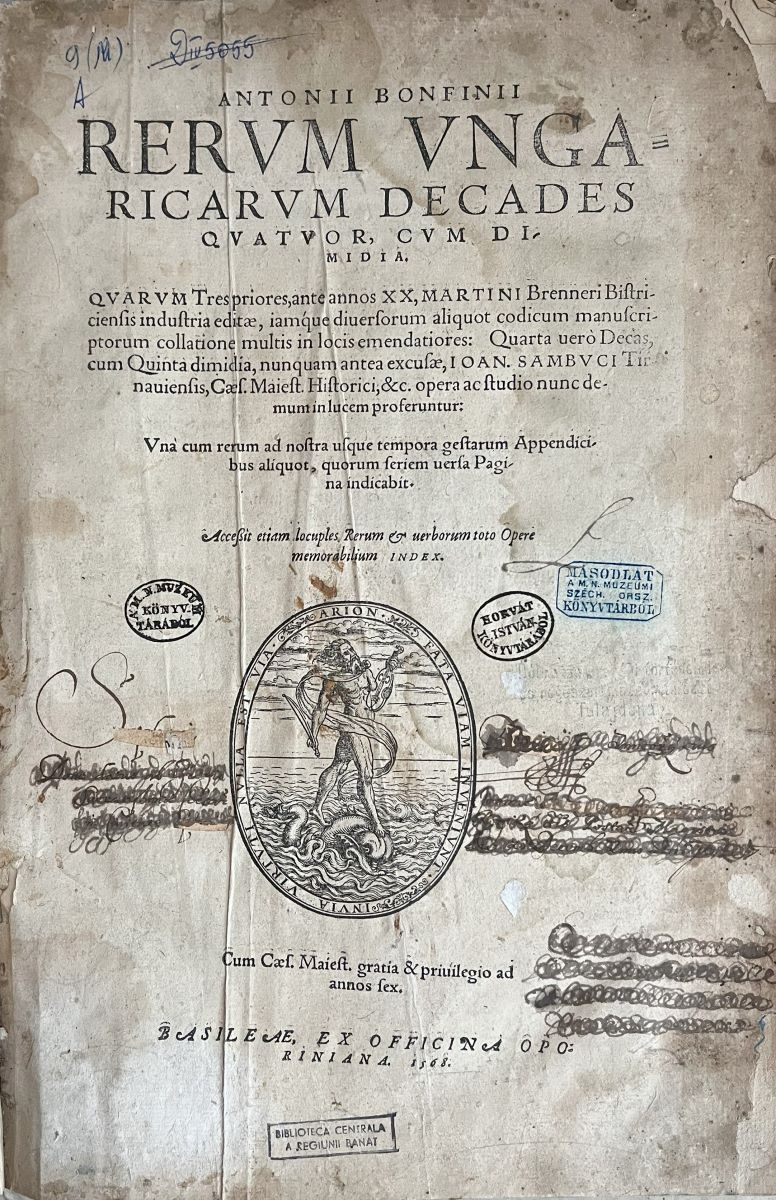 9 (M) Div 5055
A
ANTONII BONFINII
RERVM VNGA=
RICARVM DECADES
QVATVOR, CVM DI-
MIDIA.
QVARVM Tres priores, ante annos XX, MARTINI Brenneri Bistri-
ciensis industria editæ, iamq́ue diuersorum aliquot codicum manuscri-
ptorum collatione multis in locis emendatiores: Quarta uerò Decas,
cum Quinta dimidia, nunquam antea excusæ, IOAN. SAMBVCI Tir-
nauiensis, Cæs. Maiest. Historici, &c. opera ac studio nunc de-
mum in lucem proferuntur:
Vnà cum rerum ad nostra usque tempora gestarum Appendici-
bus aliquot, quorum seriem uersa Pagi-
na indicabit.
Accessit etiam locuples, Rerum & uerborum toto Opere
memorabilium INDEX.
A M. N. MUZEUM
KÖNYV-
TÁRÁBÓL
HORVÁT
ISTVÁN
KÖNYVTÁRÁBÓL
MÁSODLAT
A M. N. MÚZEUMI
SZÉCH. ORSZ.
KÖNYVTÁRBÓL
ARION. FATA VIAM INVENIUNT. INVIA VIRTVTI NVLLA EST VIA.
Cum Cæs. Maiest. gratia & priuilegio ad
annos sex.
BASILEAE, EX OFFICINA OPO=
RINIANA. 1568.
BIBLIOTECA CENTRALA
A REGIUNII BANAT